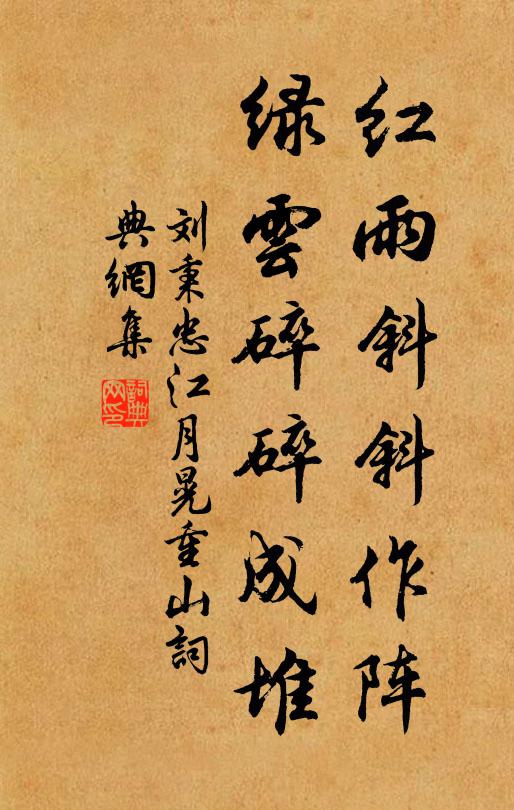 红雨斜斜作阵
绿雲碎碎成堆
刘秉忠江月晃重山詞
典網集
詞典網印